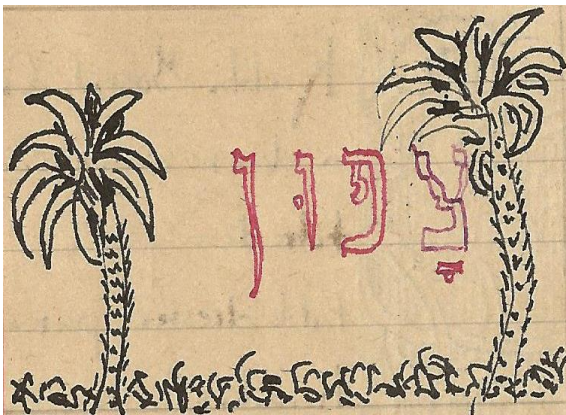 צָפוּן